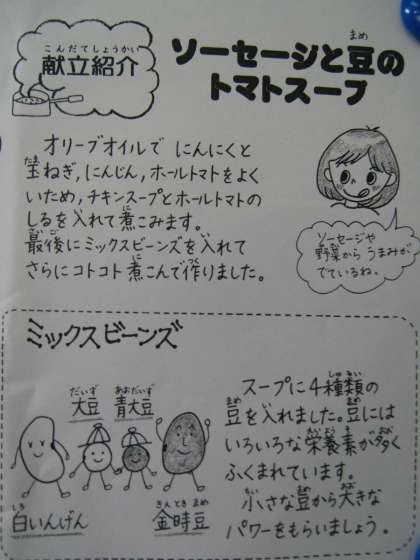 こんだてしょうかい
献立紹介
まめ
ソーセージと豆の
トマトスープ
オリーブオイルで にんにくと
玉ねぎ,にんじん,ホールトマトをよく
いため,チキンスープとホールトマトの
しるを入れて煮こみます。
最後にミックスビーンズを入れて
さらにコトコト煮こんで作りました。
ソーセージや
野菜からうまみが
でているね。
ミックスビーンズ
だいず
大豆
あおだいず
青大豆
しろ
白いんげん
きんときまめ
金時豆
スープに4種類の
豆を入れました。豆には
いろいろな栄養素が多く
ふくまれています。
小さな豆から大きな
パワーをもらいましょう。